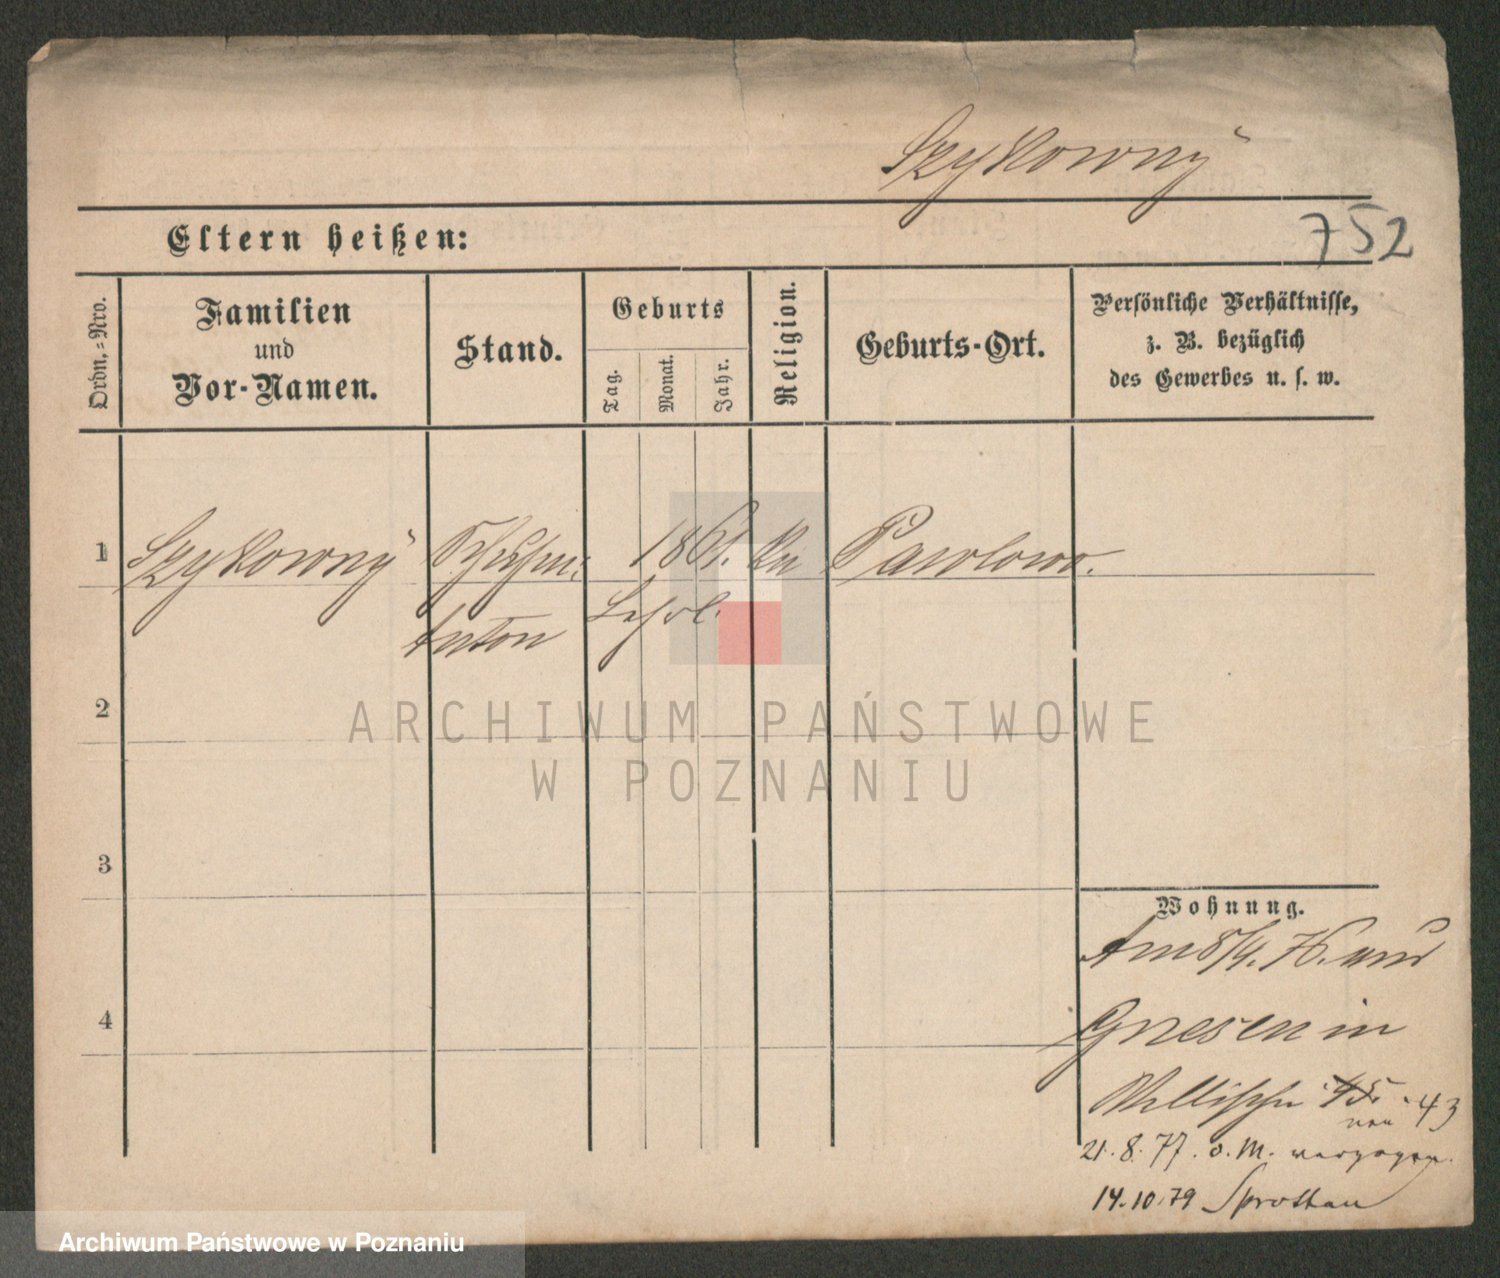 Szykowny
752
Eltern heißen:
Ordn.-Nro.
Familien
und
Vor-Namen.
Stand.
Geburts
Tag.
Monat.
Jahr.
Religion.
Geburts-Ort.
Persönliche Verhältnisse,
z. B. bezüglich
des Gewerbes u. s. w.
1 Szykowny Pawlowo.
Anton
2
3
4
Wohnung.
Am 8/4. 76. aus
Gnesen in
Wallischei 45 43
neu
21.8.77. o. M. verzogen.
14.10.79 Sprottau
ARCHIWUM PAŃSTWOWE
W POZNANIU
Archiwum Państwowe w Poznaniu